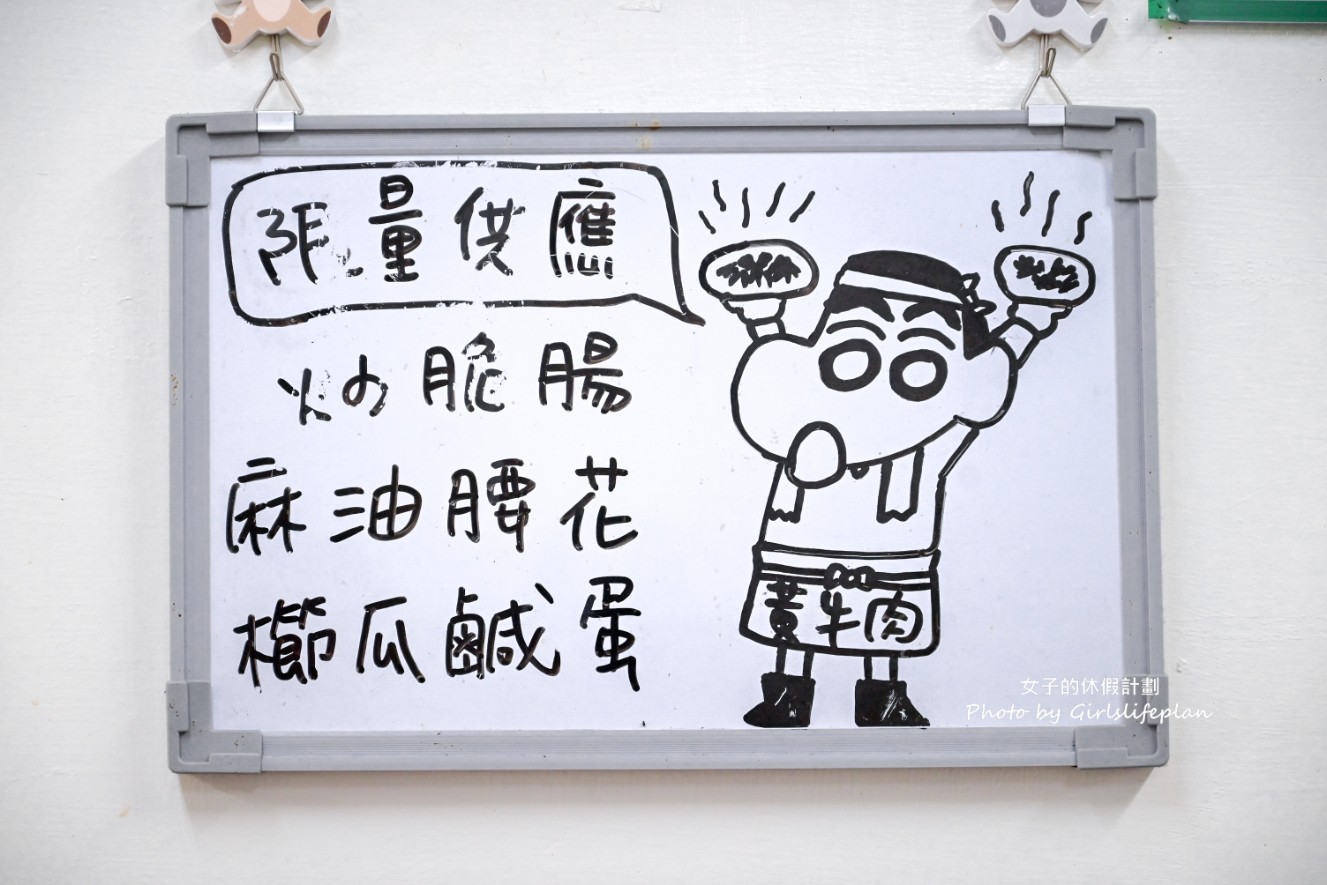 限量供應
炒脆腸
麻油腰花
櫛瓜鹹蛋
黃牛肉
女子的休假計劃
Photo by Girlslifeplan